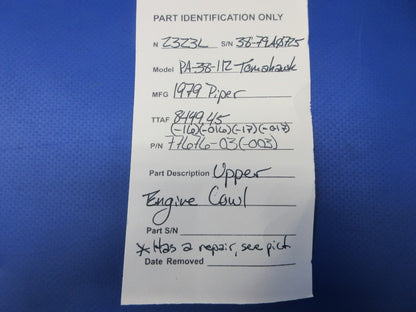 PART IDENTIFICATION ONLY
N 2323L S/N 38-79A0725
Model PA-38-112-Tomahawk
MFG 1979 Piper
TTAF 8499.45
(-16)(-016)(-17)(-017)
P/N 77616-03(-003)
Part Description Upper
Engine Cowl
Part S/N
*Has a repair, see pict
Date Removed